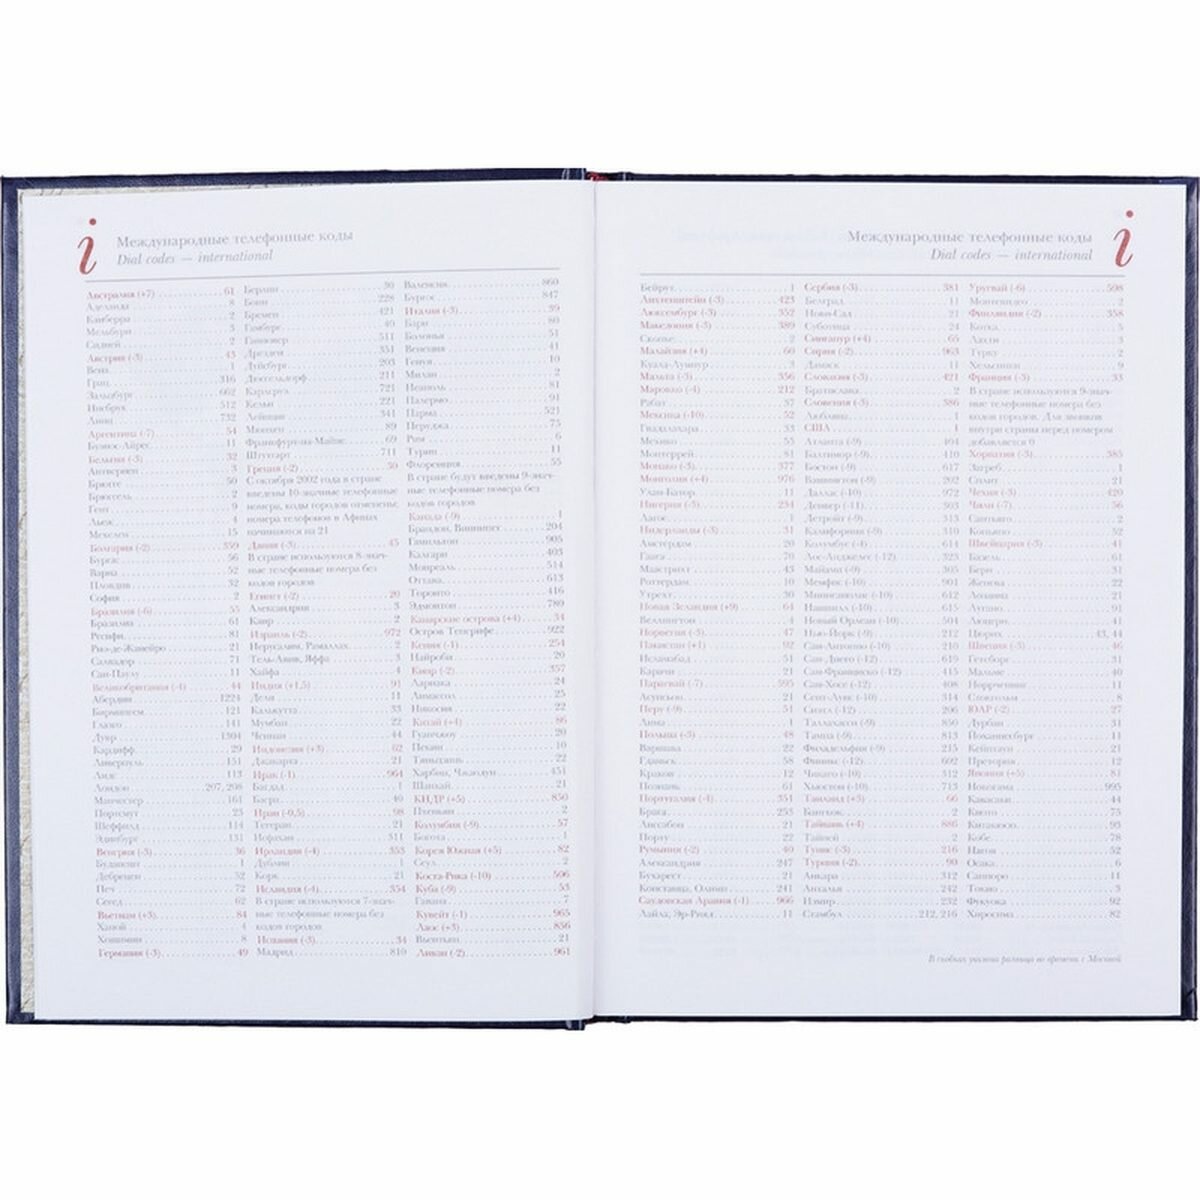 i
Международные телефонные коды
Dial codes — international
Австралия (+7) 61
Аделаида 8
Канберра 2
Мельбурн 3
Сидней 2
Австрия (-3) 43
Вена 1
Грац 316
Зальцбург 662
Инсбрук 512
Линц 732
Аргентина (-7) 54
Буэнос-Айрес 11
Бельгия (-3) 32
Антверпен 3
Брюгге 50
Брюссель 2
Гент 9
Льеж 4
Мехелен 15
Болгария (-2) 359
Бургас 56
Варна 52
Пловдив 32
София 2
Бразилия (-6) 55
Бразилиа 61
Ресифи 81
Рио-де-Жанейро 21
Сальвадор 71
Сан-Паулу 11
Великобритания (-4) 44
Абердин 1224
Бирмингем 121
Глазго 141
Дувр 1304
Кардифф 29
Ливерпуль 151
Лидс 113
Лондон 207, 208
Манчестер 161
Портсмут 23
Шеффилд 114
Эдинбург 131
Венгрия (-3) 36
Будапешт 1
Дебрецен 52
Печ 72
Сегед 62
Вьетнам (+3) 84
Ханой 4
Хошимин 8
Германия (-3) 49
Берлин 30
Бонн 228
Бремен 421
Гамбург 40
Ганновер 511
Дрезден 351
Дуйсбург 203
Дюссельдорф 211
Карлсруэ 721
Кельн 221
Лейпциг 341
Мюнхен 89
Франкфурт-на-Майне 69
Штутгарт 711
Греция (-2) 30
С октября 2002 года в стране
введены 10-значные телефонные
номера, коды городов отменены;
номера телефонов в Афинах
начинаются на 21
Дания (-3) 45
В стране используются 8-знач-
ные телефонные номера без
кодов городов
Египет (-2) 20
Александрия 3
Каир 2
Израиль (-2) 972
Иерусалим, Рамаллах 2
Тель-Авив, Яффа 3
Хайфа 4
Индия (+1,5) 91
Дели 11
Калькутта 33
Мумбаи 22
Ченнаи 44
Индонезия (+3) 62
Джакарта 21
Ирак (-1) 964
Багдад 1
Басра 40
Иран (-0,5) 98
Тегеран 21
Исфахан 311
Ирландия (-4) 353
Дублин 1
Корк 21
Исландия (-4) 354
В стране используются 7-знач-
ные телефонные номера без
кодов городов
Испания (-3) 34
Мадрид 810
Валенсия 860
Бургос 847
Италия (-3) 39
Бари 80
Болонья 51
Венеция 41
Генуя 10
Милан 2
Неаполь 81
Палермо 91
Парма 521
Перуджа 75
Рим 6
Турин 11
Флоренция 55
В стране будут введены 9-знач-
ные телефонные номера без
кодов городов
Канада (-9) 1
Брандон, Виннипег 204
Гамильтон 905
Калгари 403
Монреаль 514
Оттава 613
Торонто 416
Эдмонтон 780
Канарские острова (+4) 34
Остров Тенерифе 922
Кения (-1) 254
Найроби 20
Кипр (-2) 357
Ларнака 24
Лимассол 25
Никосия 22
Китай (+4) 86
Гуанчжоу 20
Пекин 10
Тяньцзинь 22
Харбин, Чжаодун 451
Шанхай 21
КНДР (+5) 850
Пхеньян 2
Колумбия (-9) 57
Богота 1
Корея Южная (+5) 82
Сеул 2
Коста-Рика (-10) 506
Куба (-9) 53
Гавана 7
Кувейт (-1) 965
Лаос (+3) 856
Вьентьян 21
Ливан (-2) 961
Международные телефонные коды
Dial codes — international
i
Бейрут 1
Лихтенштейн (-3) 423
Люксембург (-3) 352
Македония (-3) 389
Скопье 2
Малайзия (+4) 60
Куала-Лумпур 3
Мальта (-3) 356
Марокко (-4) 212
Рабат 37
Мексика (-10) 52
Гвадалахара 33
Мехико 55
Монтеррей 81
Монако (-3) 377
Монголия (+4) 976
Улан-Батор 11
Нигерия (-3) 234
Лагос 1
Нидерланды (-3) 31
Амстердам 20
Гаага 70
Маастрихт 43
Роттердам 10
Утрехт 30
Новая Зеландия (+9) 64
Веллингтон 4
Норвегия (-3) 47
Пакистан (+1) 92
Исламабад 51
Карачи 21
Парагвай (-7) 595
Асунсьон 21
Перу (-9) 51
Лима 1
Польша (-3) 48
Варшава 22
Гданьск 58
Краков 12
Познань 61
Португалия (-4) 351
Брага 253
Лиссабон 21
Порту 22
Румыния (-2) 40
Александрия 247
Бухарест 21
Констанца, Олимп 241
Саудовская Аравия (-1) 966
Лайла, Эр-Рияд 11
Сербия (-3) 381
Белград 11
Нови-Сад 21
Суботица 24
Сингапур (+4) 65
Сирия (-2) 963
Дамаск 11
Словакия (-3) 421
Братислава 2
Словения (-3) 386
Любляна 1
США 1
Атланта (-9) 404
Балтимор (-9) 410
Бостон (-9) 617
Вашингтон (-9) 202
Даллас (-10) 972
Денвер (-11) 303
Детройт (-9) 313
Калифорния (-9) 310
Колумбус (-4) 614
Лос-Анджелес (-12) 323
Майами (-9) 305
Мемфис (-10) 901
Миннеаполис (-10) 612
Нашвилл (-10) 615
Новый Орлеан (-10) 504
Нью-Йорк (-9) 212
Сан-Антонио (-10) 210
Сан-Диего (-12) 619
Сан-Франциско (-12) 415
Сан-Хосе (-12) 408
Сент-Луис (-10) 314
Сиэтл (-12) 206
Таллахасси (-9) 850
Тампа (-9) 813
Филадельфия (-9) 215
Финикс (-12) 602
Чикаго (-10) 312
Хьюстон (-10) 713
Таиланд (+3) 66
Бангкок 2
Тайвань (+4) 886
Тайпей 2
Тунис (-3) 216
Турция (-2) 90
Анкара 312
Анталья 242
Измир 232
Стамбул 212, 216
Уругвай (-6) 598
Монтевидео 2
Финляндия (-2) 358
Котка 5
Лахти 3
Турку 2
Хельсинки 9
Франция (-3) 33
В стране используются 9-знач-
ные телефонные номера без
кодов городов. Для звонков
внутри страны перед номером
добавляется 0
Хорватия (-3) 385
Загреб 1
Сплит 21
Чехия (-3) 420
Чили (-7) 56
Сантьяго 2
Копьяпо 52
Швейцария (-3) 41
Базель 61
Берн 31
Женева 22
Лозанна 21
Лугано 91
Люцерн 41
Цюрих 43, 44
Швеция (-3) 46
Гетеборг 31
Мальме 40
Норрчепинг 11
Стокгольм 8
ЮАР (-2) 27
Дурбан 31
Йоханнесбург 11
Кейптаун 21
Претория 12
Япония (+5) 81
Иокогама 995
Кавасаки 44
Киото 75
Китакюсю 93
Кобе 78
Нагоя 52
Осака 6
Саппоро 11
Токио 3
Фукуока 92
Хиросима 82
В скобках указана разница во времени с Москвой